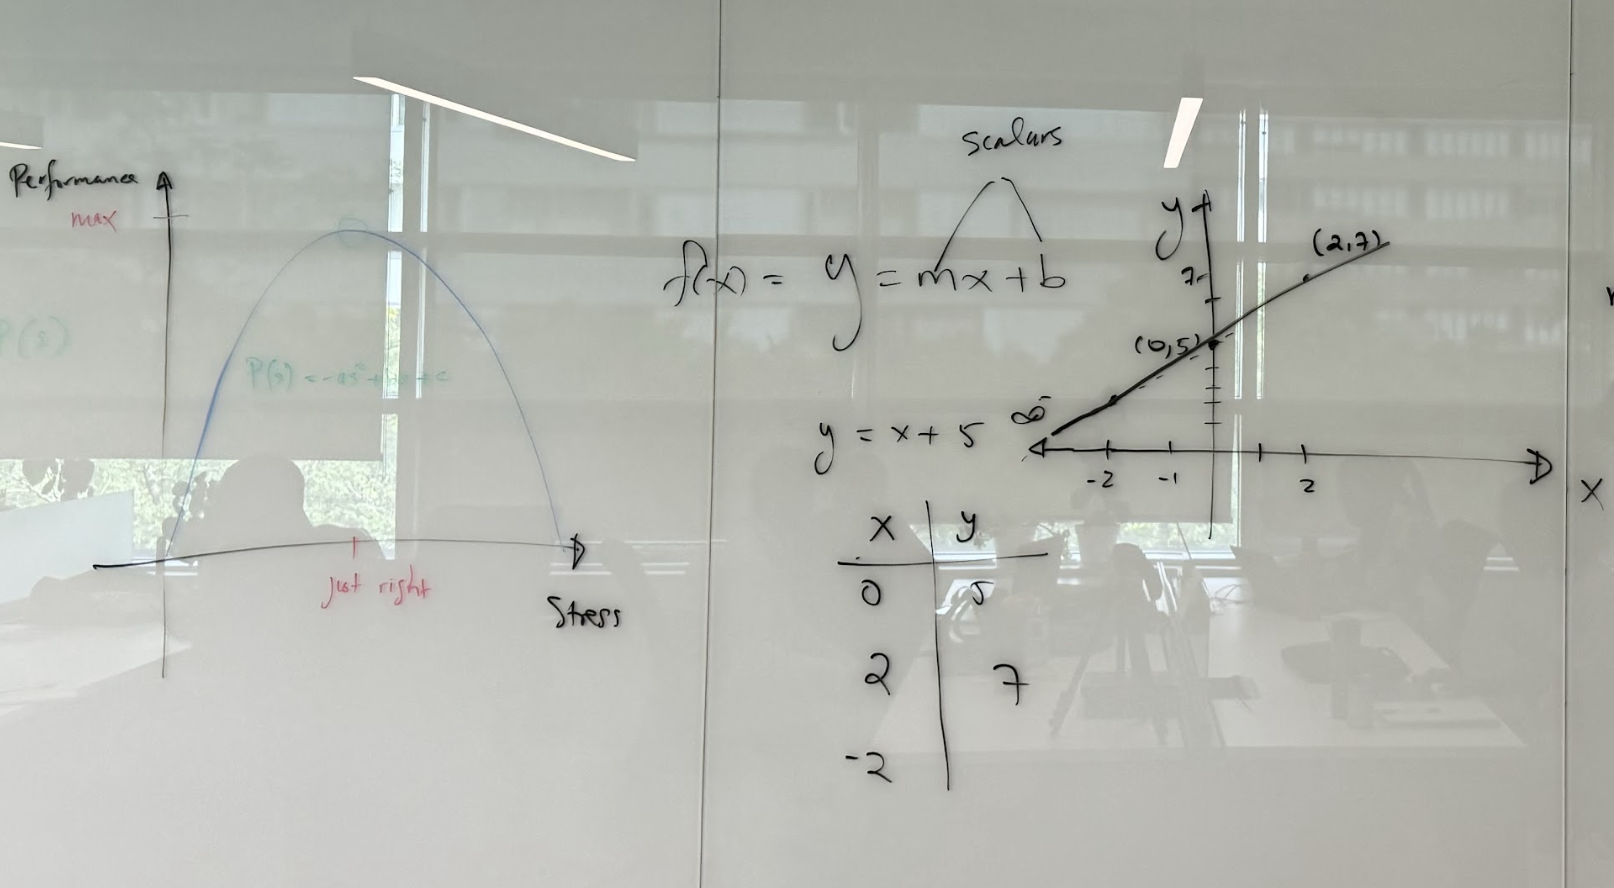 Performance
max
P(s)
just right
Stress
scalars
f(x) = y = mx + b
y = x + 5
x y
0 5
2 7
-2
y
7
(2,7)
(0,5)
∞⁻
-2 -1 2
x